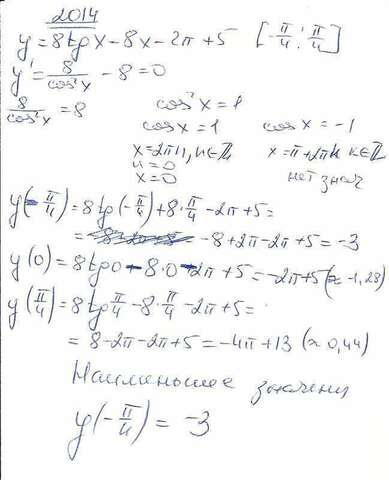 2014
y = 8tgx - 8x - 2π + 5 [-π/4; π/4]
y' = 8/cos²x - 8 = 0
8/cos²x = 8 cos²x = 1
cos x = 1 cos x = -1
x = 2πn, n∈Z x = π + 2πk k∈Z
n = 0 нет знач
x = 0
y(-π/4) = 8tg(-π/4) + 8·π/4 - 2π + 5 =
= -8 + 2π - 2π + 5 = -3
y(0) = 8tg0 - 8·0 - 2π + 5 = -2π + 5 (≈ -1,28)
y(π/4) = 8tg π/4 - 8·π/4 - 2π + 5 =
= 8 - 2π - 2π + 5 = -4π + 13 (≈ 0,44)
Наименьшее значение
y(-π/4) = -3